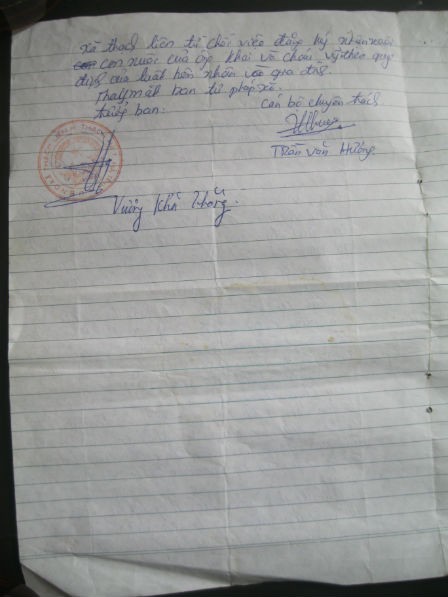 xã thạch tiên từ chối việc đăng ký nhận nuôi
con nuôi của ông khai và cháu vỹ theo quy
định của luật hôn nhân và gia đình.
Thay mặt ban tư pháp xã.
trưởng ban: Cán bộ chuyên trách
Trần văn Hường
Vương Khả